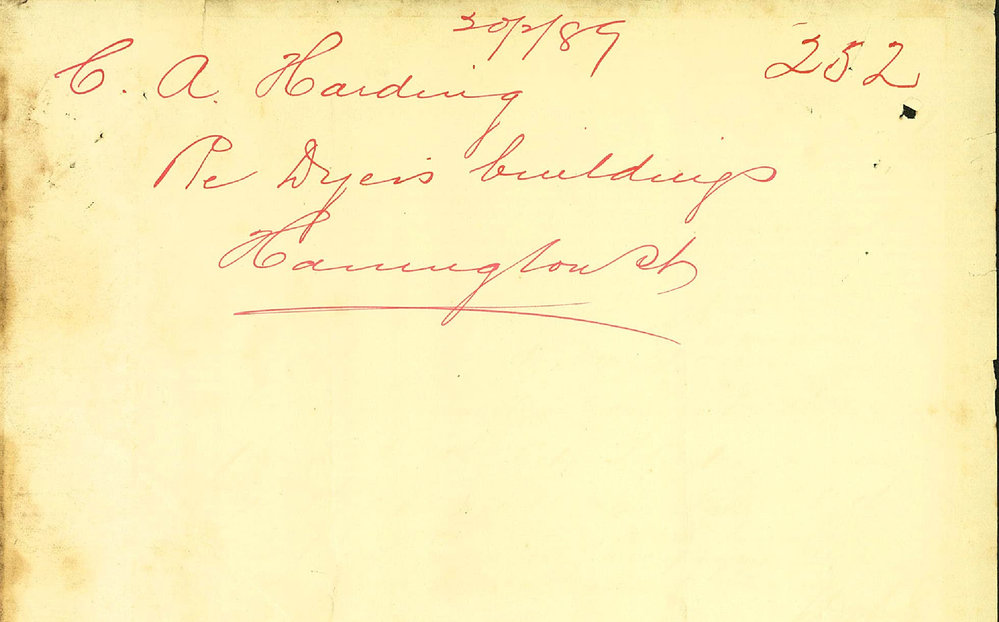 20/2/89
252
C. A. Harding
Re Dyers buildings
Harrington St